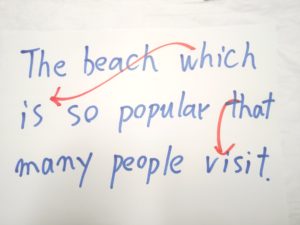 The beach which
is so popular that
many people visit.